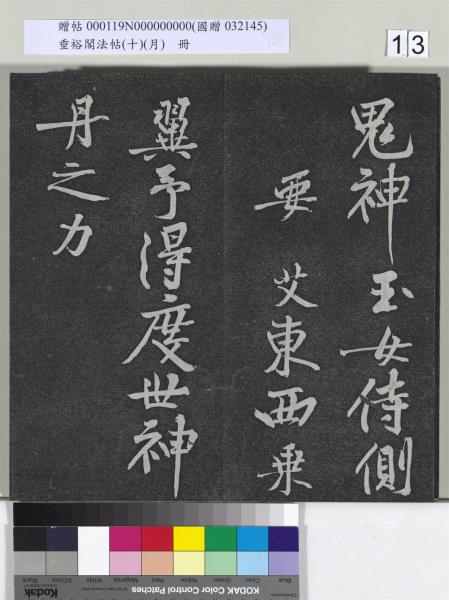 贈帖 000119N000000000(國贈 032145)
垂裕閣法帖(十)(月) 冊
13
鬼神玉女侍側
要艾東西乗
翼予得度世神
丹之力
Kodak
3/Color
Black
White
Magenta
Red
Yellow
Green
Cyan
Blue
KODAK Color Control Patches